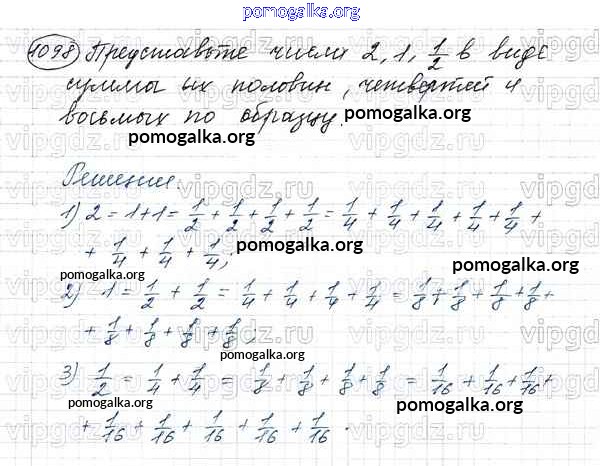 pomogalka.org
1098 Представьте числа 2, 1, 1/2 в виде
суммы их половин, четвертей и
восьмых по образцу.
pomogalka.org
pomogalka.org
vipgdz.ru vipgdz.ru vipgdz.ru
Решение.
1) 2 = 1+1 = 1/2 + 1/2 + 1/2 + 1/2 = 1/4 + 1/4 + 1/4 + 1/4 + 1/4 +
pomogalka.org
+ 1/4 + 1/4 + 1/4;
pomogalka.org
pomogalka.org
2) 1 = 1/2 + 1/2 = 1/4 + 1/4 + 1/4 + 1/4 = 1/8 + 1/8 + 1/8 + 1/8 +
pomogalka.org
+ 1/8 + 1/8 + 1/8 + 1/8;
pomogalka.org
3) 1/2 = 1/4 + 1/4 = 1/8 + 1/8 + 1/8 + 1/8 = 1/16 + 1/16 + 1/16 +
pomogalka.org
pomogalka.org
+ 1/16 + 1/16 + 1/16 + 1/16 + 1/16.
vipgdz.ru vipgdz.ru vipgdz.ru